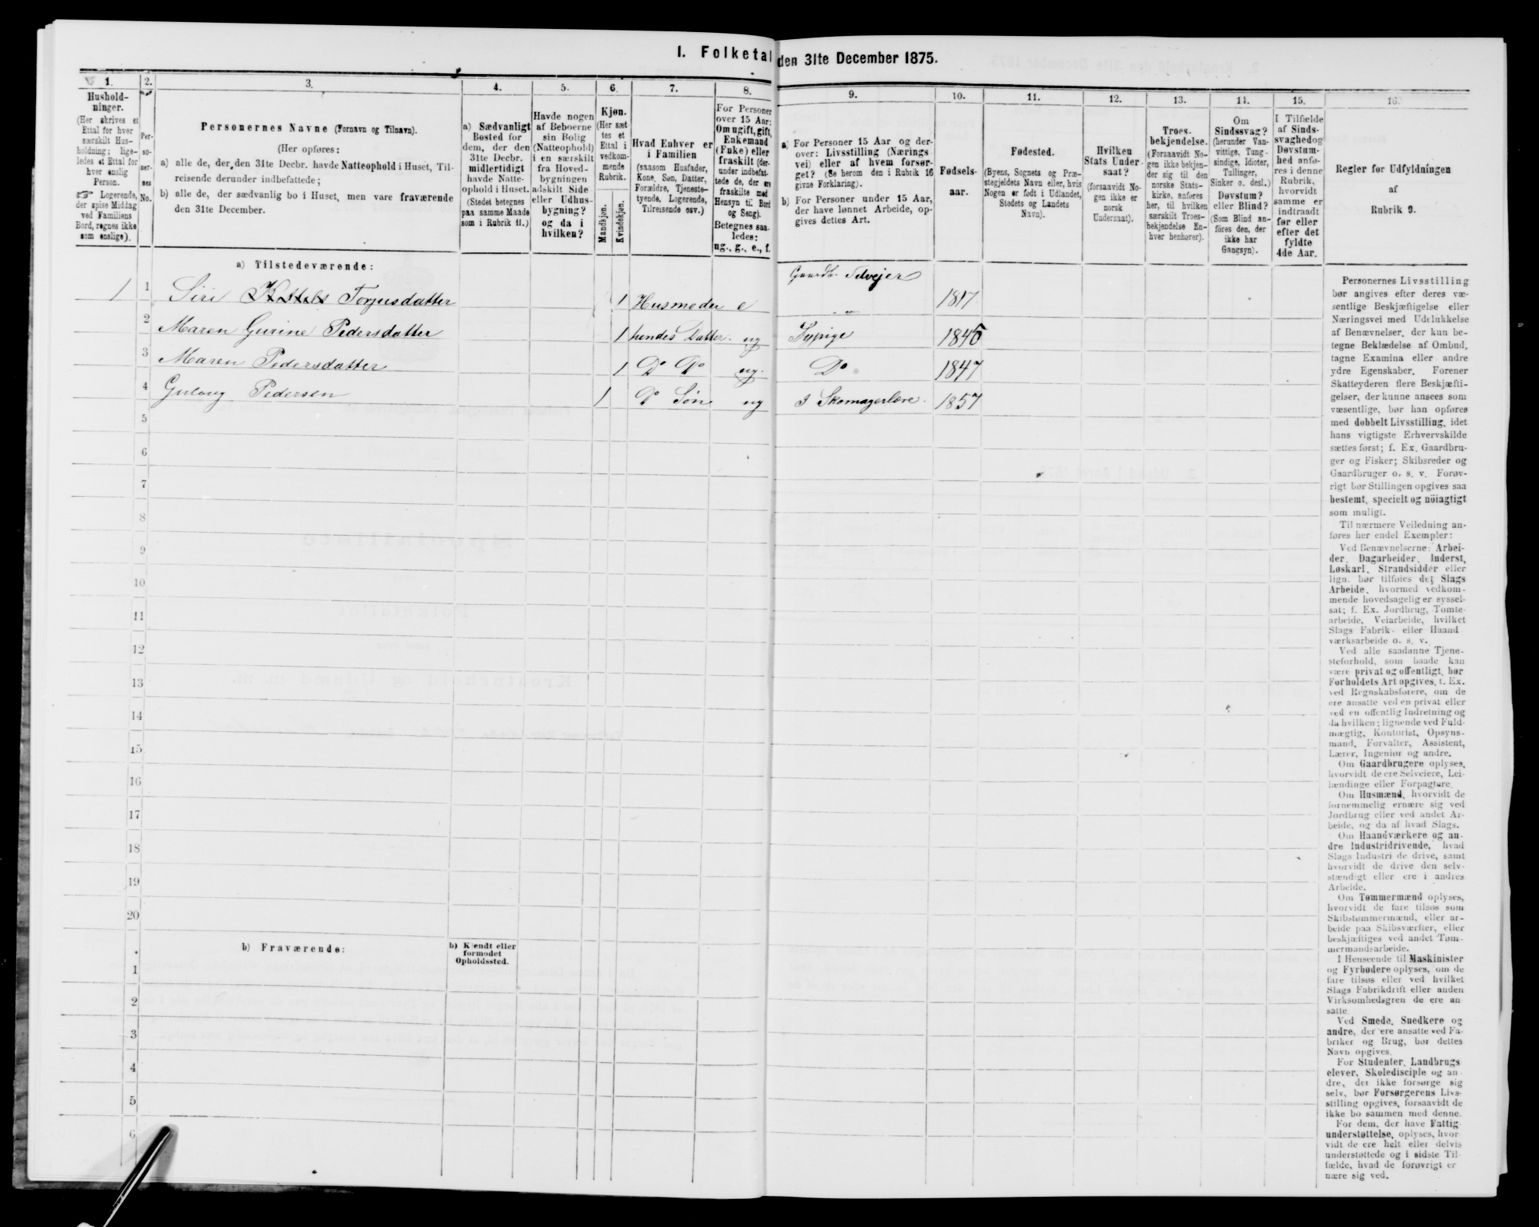 I. Folketal den 31te December 1875.
1.
Hushold-
ninger.
(Her skrives et
Ettal for hver
særskilt Hus-
holdning; lige-
ledes et Ettal for
hver enslig
Person.
Logerende,
der spise Middag
ved Familiens
Bord, regnes ikke
som enslige).
2.
Per-
so-
ner-
nes
No.
3.
Personernes Navne (Fornavn og Tilnavn).
(Her opføres:
a) alle de, der den 31te Decbr. havde Natteophold i Huset, Til-
reisende derunder indbefattede;
b) alle de, der sædvanlig bo i Huset, men vare fraværende
den 31te December.
4.
a) Sædvanligt
Bosted for
dem, der den
31te Decbr.
midlertidigt
havde Natte-
ophold i Huset.
(Stedet betegnes
paa samme Maade
som i Rubrik 11.)
5.
Havde nogen
af Beboerne
sin Bolig
(Natteophold)
i en særskilt
fra Hoved-
bygningen
adskilt Side
eller Udhus-
bygning?
og da i
hvilken?
6.
Kjøn.
(Her sæt
tes et
Ettal i
vedkom-
mende
Rubrik.
Mandkjøn.
Kvindekjøn.
7.
Hvad Enhver er
i Familien
(saasom Husfader,
Kone, Søn, Datter,
Forældre, Tjeneste-
tyende, Logerende,
Tilreisende osv.)
8.
For Personer
over 15 Aar:
Om ugift, gift,
Enkemand
(Enke) eller
fraskilt (der-
under indbefat-
tede de, der ere
fraskilte med
Hensyn til Bord
og Seng).
Betegnes saa-
ledes:
ug., g., e., f.
9.
a) For Personer 15 Aar og der-
over: Livsstilling (Nærings
vei) eller af hvem forsør-
get? (Se herom den i Rubrik 16
givne Forklaring).
b) For Personer under 15 Aar,
der have lønnet Arbeide, op-
gives dettes Art.
10.
Fødsels-
aar.
11.
Fødested.
(Byens, Sognets og Præ-
stegjeldets Navn eller, hvis
Nogen er født i Udlandet,
Stedets og Landets
Navn).
12.
Hvilken
Stats Under-
saat?
(forsaavidt No-
gen ikke er
norsk
Undersaat).
13.
Troes-
bekjendelse.
(Forsaavidt No-
gen ikke bekjen-
der sig til den
norske Stats-
kirke, anføres
her, til hvilken
særskilt Troes-
bekjendelse En-
hver henhører).
14.
Om
Sindssvag?
(herunder Van-
vittige, Tung-
sindige, Idioter,
Tullinger,
Sinker o. desl.)
Døvstum?
eller Blind?
(Som Blind an-
føres den, der
ikke har
Gangsyn).
15.
I Tilfælde
af Sinds-
svaghed og
Døvstum-
hed anfø-
res i denne
Rubrik,
hvorvidt
samme er
indtraadt
før eller
efter det
fyldte
4de Aar.
16.
Regler for Udfyldningen
af
Rubrik 9.
a) Tilstedeværende:
1 1 Siri Torjusdatter 1 Husmoder e Gaardbr. Selveier 1817
2 Maren Gurine Pedersdatter 1 hendes Datter ug Sypige 1845
3 Maren Pedersdatter 1 Do Do ug. Do 1847
4 Gulong Pedersen 1 Do Søn ug I Skomagerlære 1857
5
6
7
8
9
10
11
12
13
14
15
16
17
18
19
20
b) Fraværende:
b) Kjendt eller
formodet
Opholdssted.
1
2
3
4
5
6
Personernes Livsstilling
bør angives efter deres væ-
sentlige Beskjæftigelse eller
Næringsvei med Udelukkelse
af Benævnelser, der kun be-
tegne Beklædelse af Ombud,
tagne Examina eller andre
ydre Egenskaber. Forener
Skatteyderen flere Beskjæfti-
gelser, der kunne ansees som
væsentlige, bør han opføres
med dobbelt Livsstilling, idet
hans vigtigste Erhvervskilde
sættes først; f. Ex. Gaardbru-
ger og Fisker; Skibsreder og
Gaardbruger o. s. v. Forøv-
rigt bør Stillingen opgives saa
bestemt, specielt og nöiagtigt
som muligt.
Til nærmere Veiledning an-
føres her endel Exempler:
Ved Benævnelserne: Arbei-
der, Dagarbeider, Inderst,
Løskarl, Strandsidder eller
lign. bør tilføies det Slags
Arbeide, hvormed vedkom-
mende hovedsagelig er syssel-
sat; f. Ex. Jordbrug, Tomte-
arbeide, Veiarbeide, hvilket
Slags Fabrik- eller Haand
værksarbeide o. s. v.
Ved alle saadanne Tjene-
steforhold, som baade kan
være privat og offentligt, bør
Forholdets Art opgives, f. Ex.
ved Regnskabsførere, om de
ere ansatte ved en privat eller
ved en offentlig Indretning og
da hvilken; lignende ved Fuld-
mægtig, Kontorist, Opsyns-
mand, Forvalter, Assistent,
Lærer, Ingeniør og andre.
Om Gaardbrugere oplyses,
hvorvidt de ere Selveiere, Lei-
lændinge eller Forpagtere.
Om Husmænd, hvorvidt de
fornemmelig ernære sig ved
Jordbrug eller ved andet Ar-
beide, og da af hvad Slags.
Om Haandværkere og an-
dre Industridrivende, hvad
Slags Industri de drive, samt
hvorvidt de drive den selv-
stændigt eller ere i andres
Arbeide.
Om Tømmermænd oplyses,
hvorvidt de fare tilsøs som
Skibstømmermænd, eller ar-
beide paa Skibsværfter, eller
beskjæftiges ved andet Tøm-
mermandsarbeide.
I Henseende til Maskinister
og Fyrbødere oplyses, om de
fare tilsøs eller ved hvilket
Slags Fabrikdrift eller anden
Virksomhedsgren de ere an
satte.
Ved Smede, Snedkere og
andre, der ere ansatte ved Fa-
briker og Brug, bør dettes
Navn opgives.
For Studenter, Landbrugs
elever, Skoledisciple og an
dre, der ikke forsørge sig
selv, bør Forsørgerens Livs-
stilling opgives, forsaavidt de
ikke bo sammen med denne.
For dem, der have Fattig
understøttelse, oplyses, hvor
vidt de ere helt eller delvis
understøttede og i sidste Til
fælde, hvad de forøvrigt er
nære sig ved.